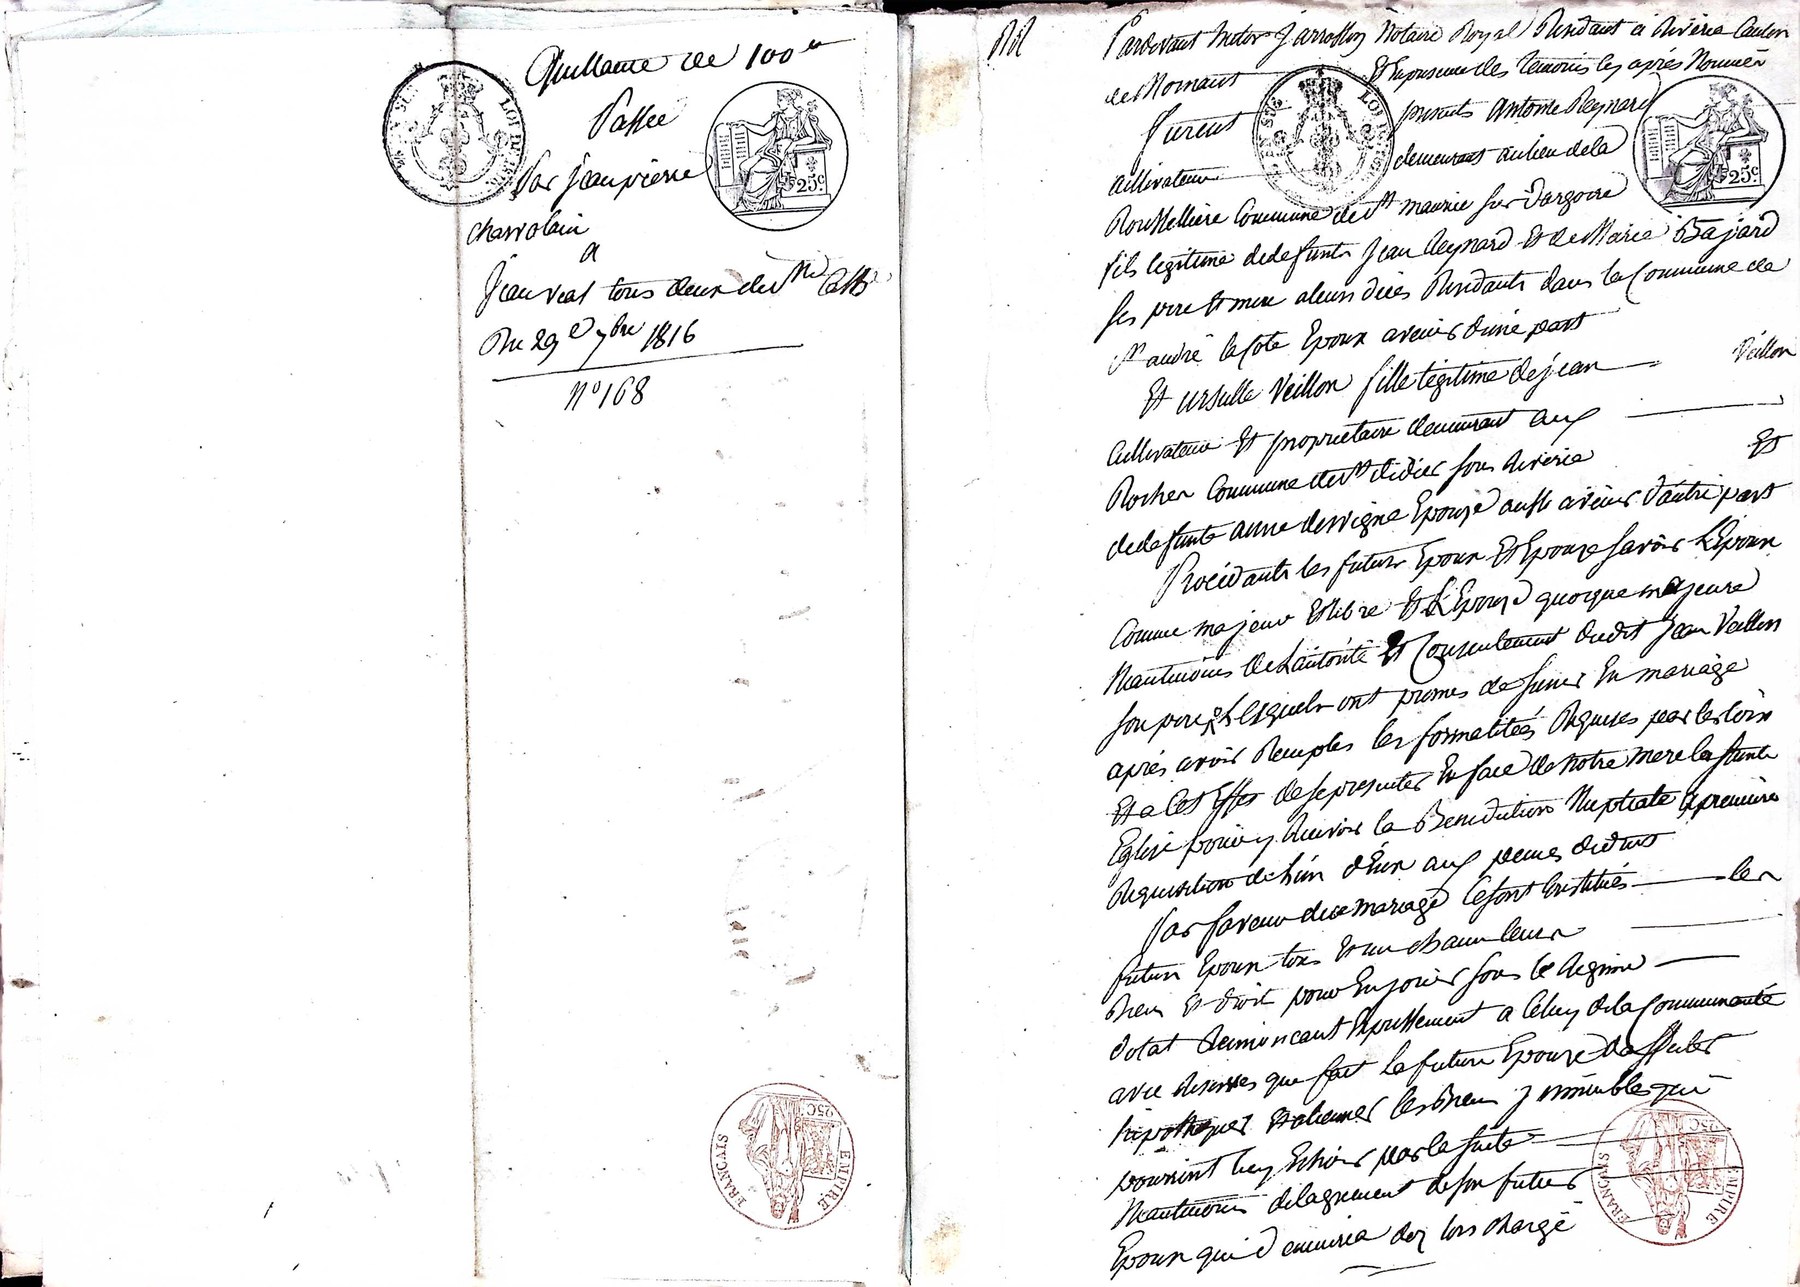 Quittance de 100 f
Passée
Par jean pierre
charvolain
a
jean vial tous deux de St
Du 29e 7bre 1816
N° 168
25c
LOI DE
EMPIRE
FRANCAIS
25C
Pardevant Notaire Royal Résidant à Riverie Canton
de Mornant Et En presence des temoins cy après Nommés
furent presents Antoine Reynard
cultivateur demeurant au lieu de la
Roussilliere Commune de St maurice sur Dargoire
fils legitime de defunt Jean Reynard Et de Marie Bajard
ses pere Et mere Residants dans la Commune de
St andré la Cote Epoux avenir d'une part
Et ursulle Veillon fille legitime de jean Veillon
Cultivateur Et proprietaire demeurant aux
Rocher Commune de St didier sous Riverie Et
de defunte anne Epouze aussi avenir d'autre part
Procédants les futurs Epoux Et Epouze savoir L'Epoux
Comme majeur Et libre Et L'Epouze quoique majeure
Neantmoins de L'autorité Et Consentement dudit Jean Veillon
son pere Lesquels ont promis de s'unir En mariage
après avoir Remplis les formalités Requises par les loix
Et a Cet Effet de se presenter En face de Notre mere la Sainte
Eglise pour y Recevoir la Benediction Nuptiale a premiere
Requisition de L'un d'Eux aux peines de droit
Par faveur de ce mariage se sont Constitués les
futurs Epoux tous Et un chacun leurs
Biens Et droit pour En jouir sous le Regime
dotal Renoncant Expressement a Celuy de la Communauté
avec Reserves que fait la future Epouze
hipothequer Et aliener les Biens immeubles qui
pourront luy Echoir par la suite
Neantmoins de l'agrement de son futur
Epoux qui demeurera dez lors chargé
25c
LOI DE
EMPIRE
FRANCAIS
25C